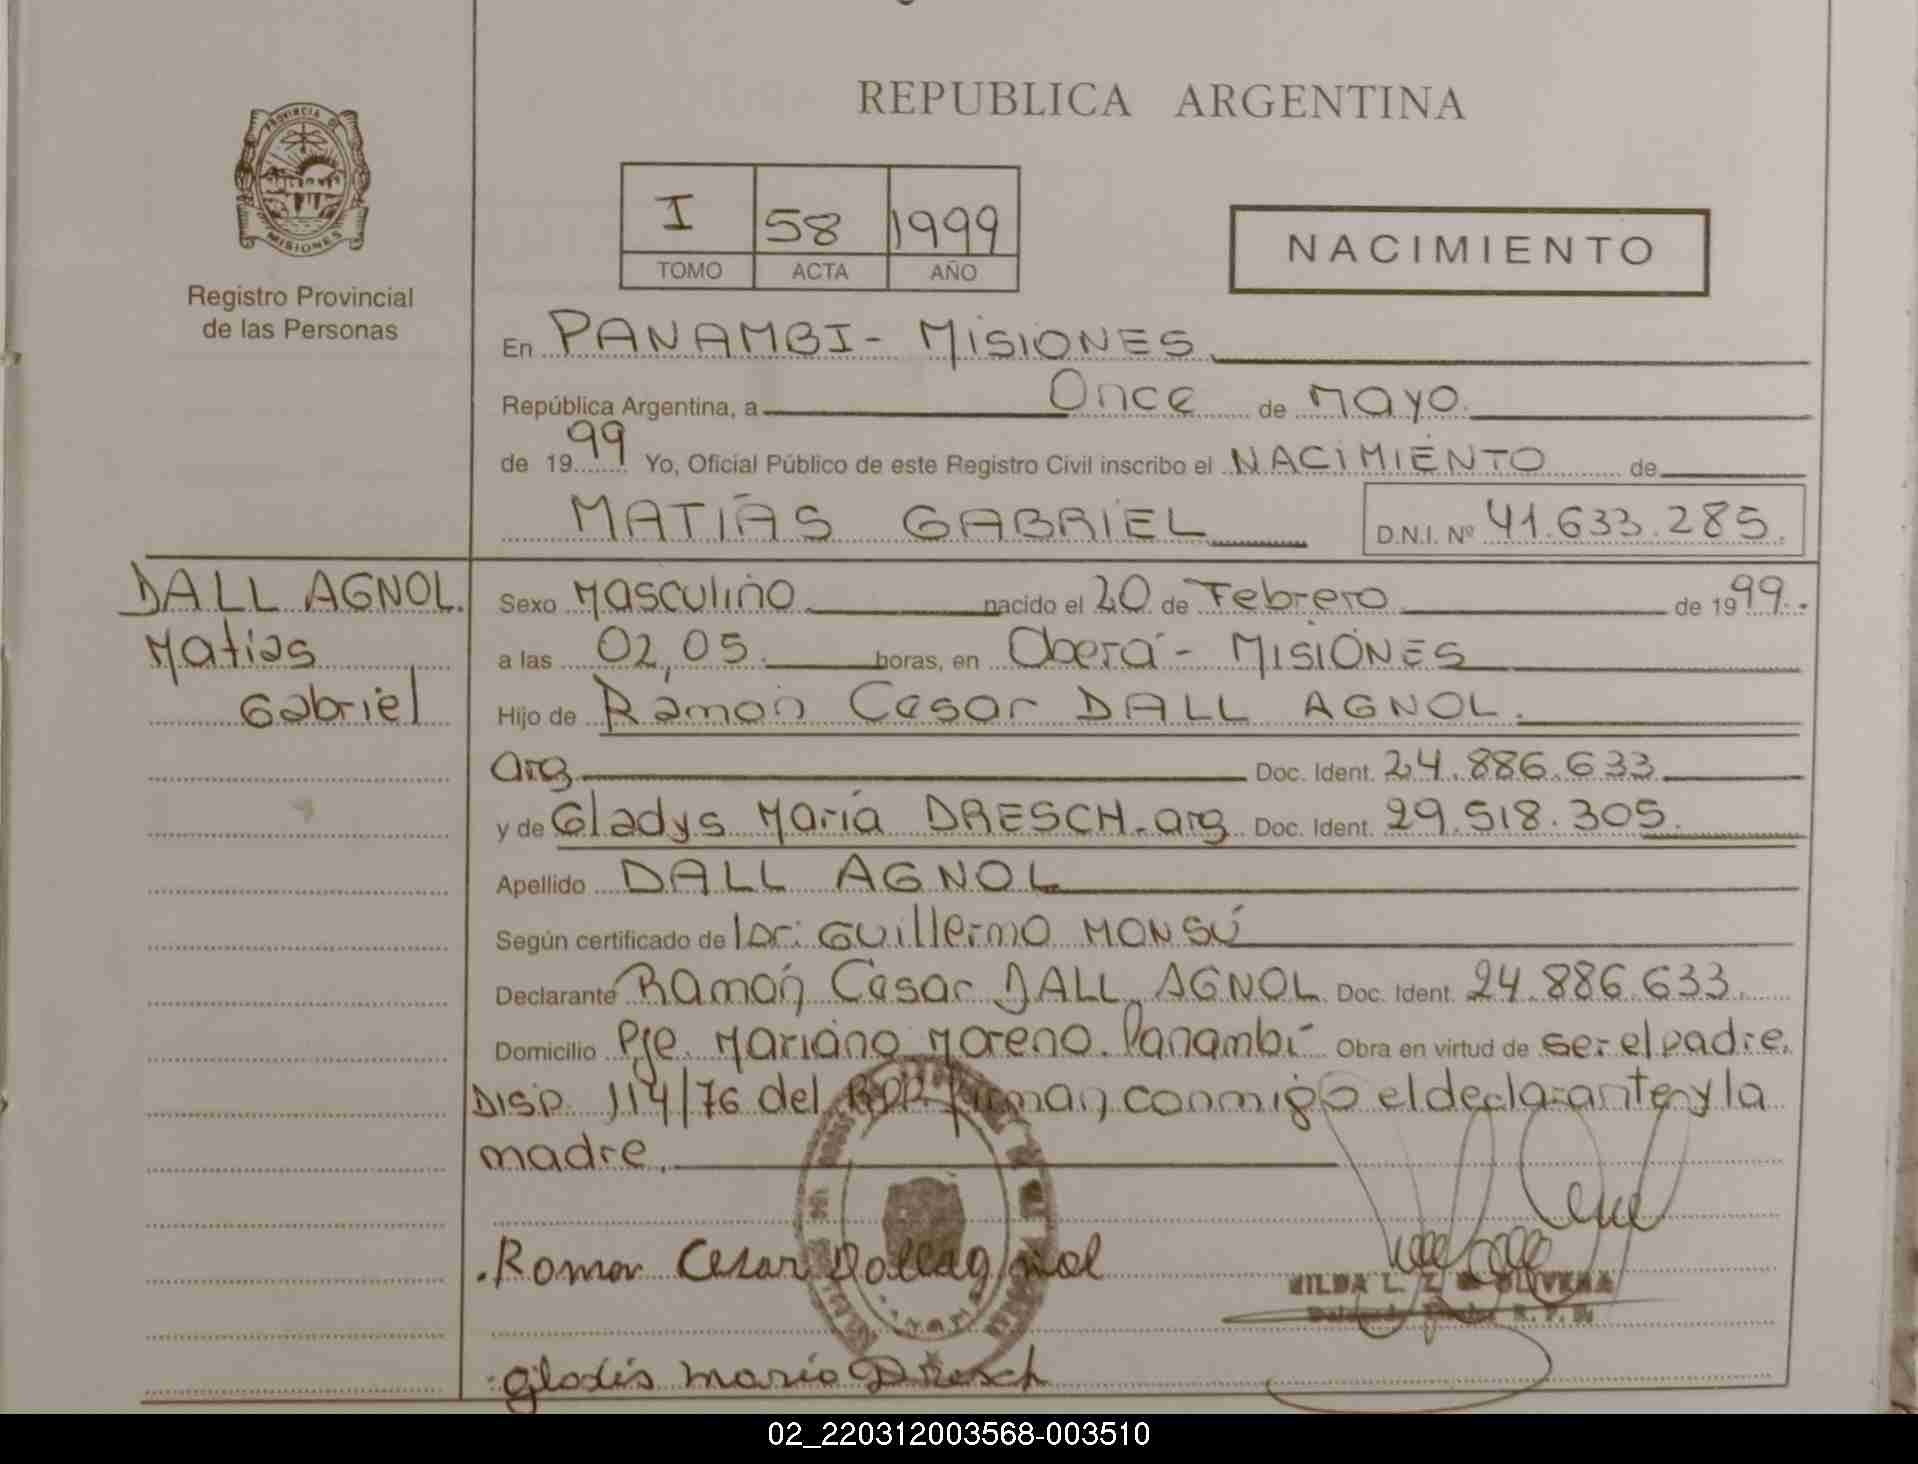 REPUBLICA ARGENTINA
PROVINCIA DE
MISIONES
Registro Provincial
de las Personas
I 58 1999
TOMO ACTA AÑO
NACIMIENTO
En PANAMBI- MISIONES
República Argentina, a Once de MAYO
de 1999 Yo, Oficial Público de este Registro Civil inscribo el NACIMIENTO de
MATIAS GABRIEL D.N.I. Nº 41.633.285.
DALL AGNOL.
Matias
Gabriel
Sexo Masculino nacido el 20 de Febrero de 1999.
a las 02,05 horas, en Oberá - MISIONES
Hijo de Ramón Cesar DALL AGNOL.
arg Doc. Ident. 24.886.633
y de Gladys María DRESCH. arg Doc. Ident. 29.518.305.
Apellido DALL AGNOL
Según certificado de Dr: Guillermo MONSÚ
Declarante Ramón Cesar DALL AGNOL Doc. Ident. 24.886.633.
Domicilio Pje. Mariano Moreno. Panambí Obra en virtud de ser el padre.
DISP. 114/76 del RPP firman conmigo el declarante y la
madre.
Roman Cesar Dallagnol
HILDA L. Z. OLIVERA
R. P. P.
gladis maria Dresch
02_220312003568-003510